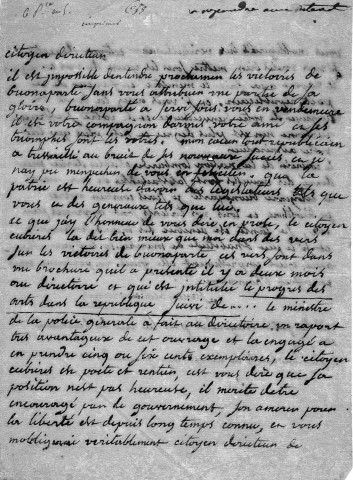 citoyen directeur
il est impossible dentendre proclamer les victoires de
buonaparte sans vous attribuer une partie de sa
gloire, buonaparte a servi sous vous en vendemiere
il est votre compagnon darmes votre ami et ses
triomphes sont les votres. mon coeur tout republicain
a tressailli au bruit de ses nouveaux succès et je
nay pu mempecher de vous en feliciter. que la
patrie est heureuse davoir des legislateurs tels que
vous et des generaux tels que lui.
ce que jay lhonneur de vous dire en prose, le citoyen
cubieres la dit bien mieux que moi dans des vers
sur les victoires de buonaparte ces vers sont dans
une brochure quil a présenté il y a deux mois
au directoire et qui est intitulée le progres des
arts dans la republique suivi de.... le ministre
de la police générale a fait au directoire, un raport
tres avantageux de cet ouvrage et la engagé a
en prendre cinq ou six cents exemplaires, le citoyen
cubieres est poete et rentier, cest vous dire que sa
position nest pas heureuse, il merite detre
encouragé par le gouvernement, son amour pour
la liberté est depuis long temps connu, et vous
mobligerai veritablement citoyen directeur de